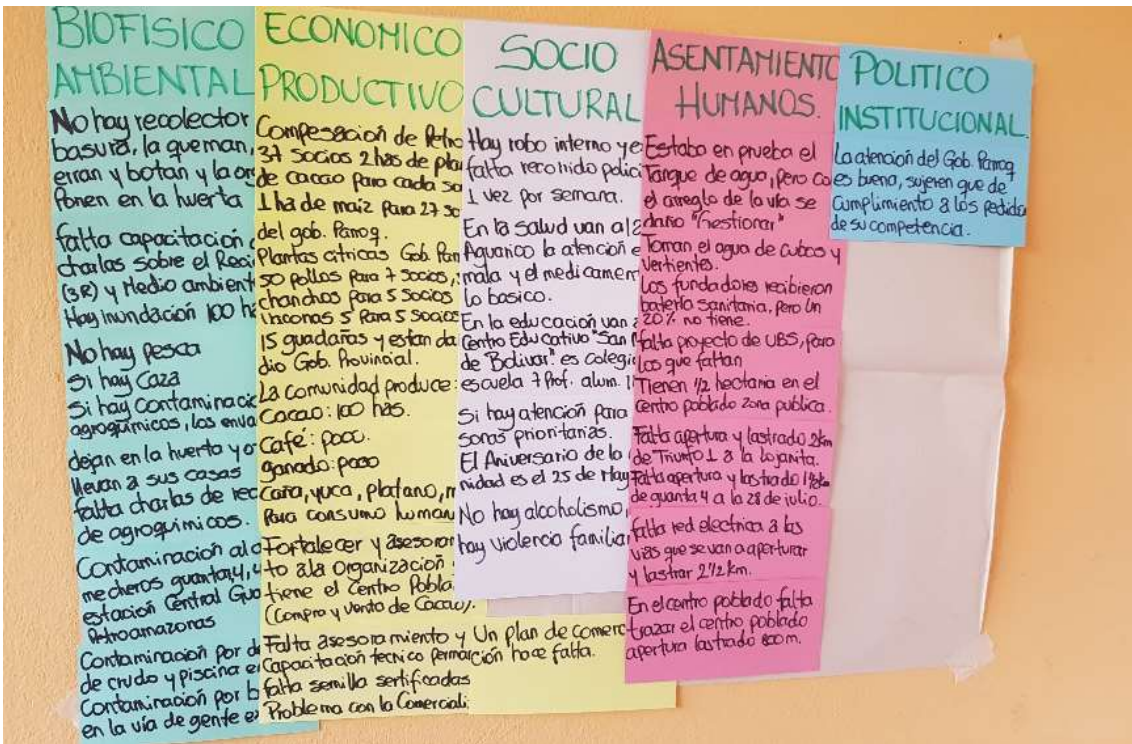 BIOFISICO
AMBIENTAL
No hay recolector
basura, la queman,
erran y botan y la org
Ponen en la huerta
falta capacitación
charlas sobre el Reci
(3R) y Medio ambient
Hay Inundación 100 ha
No hay pesca
Si hay Caza
Si hay Contaminacio
agroquimicos, los enva
dejan en la huerto y o
llevan a sus casas
falta charlas de rec
de agroquimicos.
Contaminación al a
mecheros guanta,4,
estación Central Gua
Petroamazonas
Contaminación por d
de crudo y piscina e
Contaminación por b
en la vía de gente e
ECONOMICO
PRODUCTIVO
Compesacion de Petro
37 Socios 2 has de pla
de cacao para cada so
1 ha de maiz para 27 so
del gob. Parroq.
Plantas citricas Gob. Parr
50 pollos para 7 socios,
chanchos para 5 Socios
5 Para 5 Socios
15 guadañas y estan da
dio Gob. Provincial.
La comunidad produce:
Cacao: 100 has.
Café: poco.
ganado: poco
Caña, yuca, platano, m
Para consumo human
Fortalecer y asesorar
to a la organización
tiene el Centro Pobla
(Compra y venta de Cacao).
Falta asesoramiento y Un plan de comer
Capacitacion tecnico perma ción hace falta.
falta semilla sertificadas
Problema con la Comerciali
SOCIO
CULTURAL
Hay robo interno y e
falta recorrido polici
1 vez por semana.
En la salud van a l
Aguarico la atención e
mala y el medicamen
lo basico.
En la educación van a
Centro Educativo "San
de Bolivar" es colegi
escuela 7 Prof. alum. 1
Si hay atención para
sonas prioritarias.
El Aniversario de la
nidad es el 25 de May
No hay alcoholismo,
hay violencia familiar
ASENTAMIENTO
HUMANOS.
Estaba en prueba el
Tanque de agua, pero co
el arreglo de la vía se
daño "Gestionar"
Toman el agua de cubos y
Vertientes.
Los fundadores recibieron
bateria sanitaria, pero Un
20% no tiene.
falta proyecto de UBS, Para
los que faltan
Tienen 1/2 hectaria en el
Centro poblado zona publica.
Falta apertura y lastrado 2km
de Triunfo 1 a la Lojanita.
Falta apertura y lastrado 1 1/2km
de guanta 4 a la 28 de julio.
falta red electrica a las
vias que se van a aperturar
y lastrar 2 1/2 km.
En el centro poblado falta
trazar el centro poblado
apertura lastrado 800m.
POLITICO
INSTITUCIONAL.
La atención del Gob. Parroq
es buena, sujeren que de
Cumplimiento a los pedido
de su competencia.